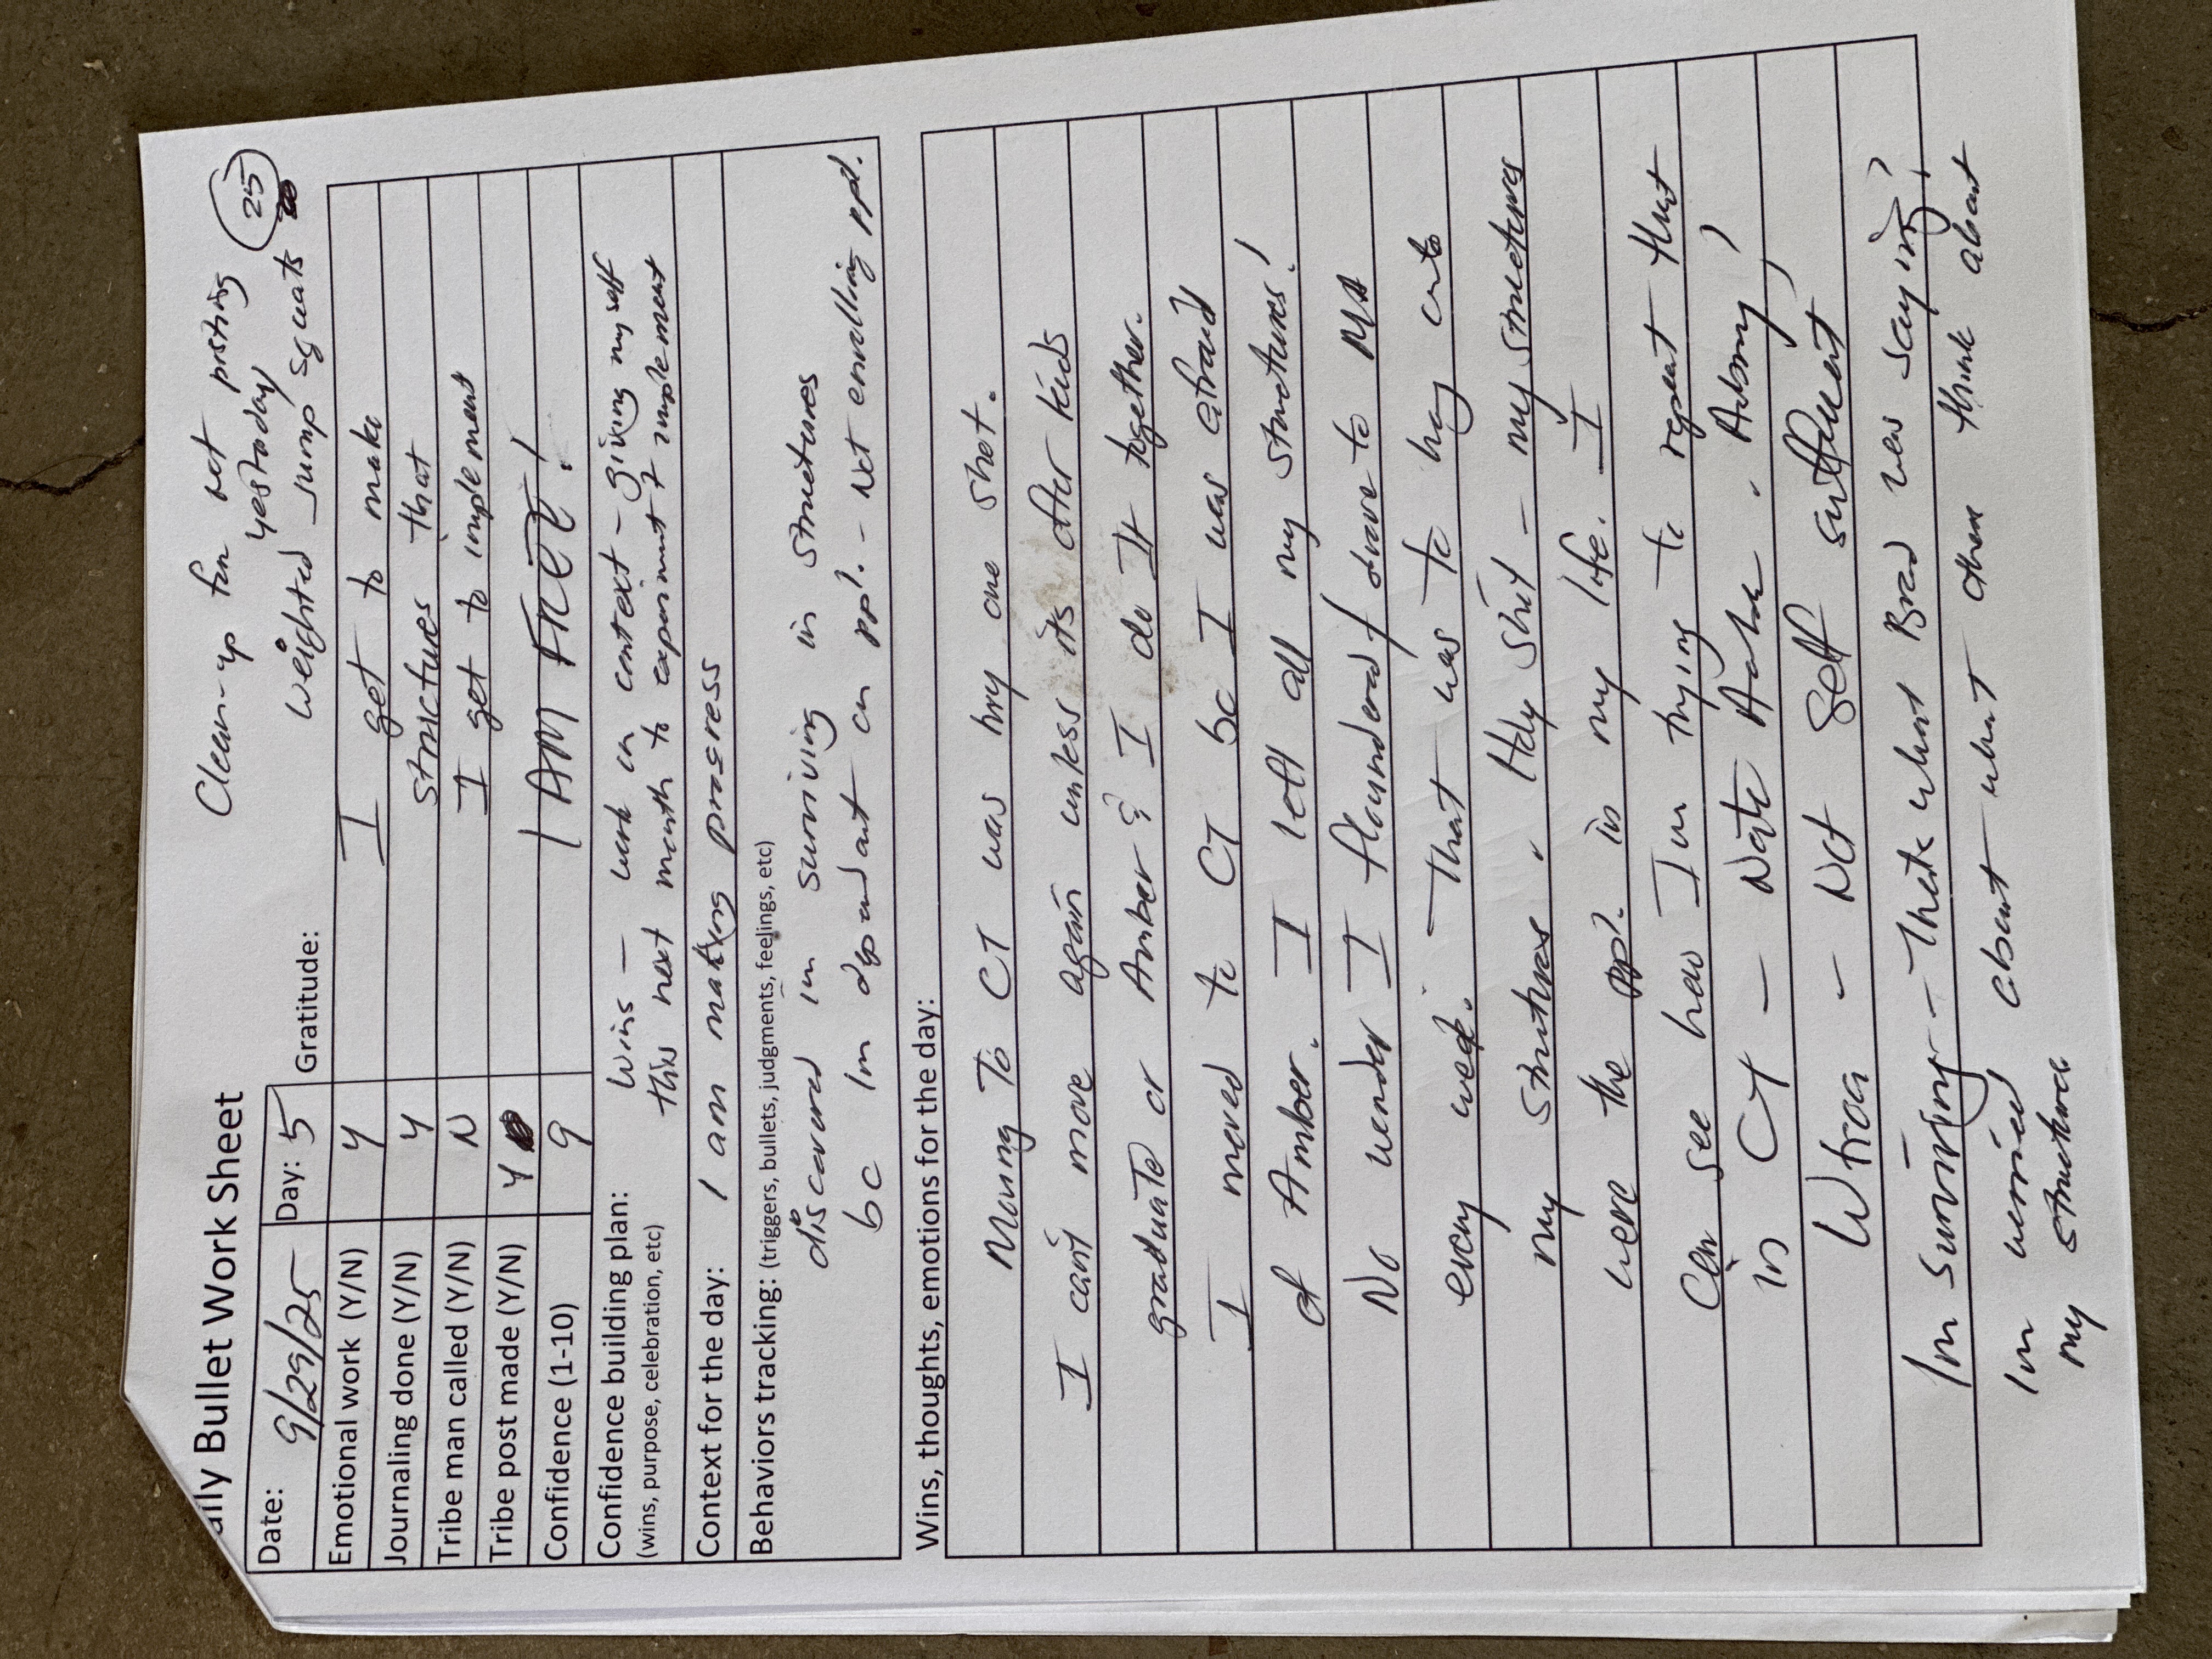 Clean-up for not posting
yesterday 25
weighted jump squats
aily Bullet Work Sheet
Date: 9/29/25 Day: 5 Gratitude:
Emotional work (Y/N) Y I get to make
Journaling done (Y/N) Y structures that
Tribe man called (Y/N) N I get to implement
Tribe post made (Y/N) Y
Confidence (1-10) 9 I AM FREE!
Confidence building plan: Wins - work on context - giving myself
(wins, purpose, celebration, etc) this next month to experiment & implement
Context for the day: I am making progress
Behaviors tracking: (triggers, bullets, judgments, feelings, etc)
discovered im surviving in structures
bc Im dependent on ppl. - not enrolling ppl.
Wins, thoughts, emotions for the day:
Moving To CT was my one shot.
I can't move again unless its after kids
graduate or Amber & I do It together.
I moved to CT bc I was afraid
of Amber. I left all my structures!
No wonder I floundered / drove to MA
every week. That was to hang onto
my structures. Holy shit - my structures
were the ppl. in my life. I
Can see how I'm trying to repeat that
in CT - Nate . Adamy,
- Not Self sufficient
Im surviving - Thats what Brad was saying!
Im worried about what other think about
my structure